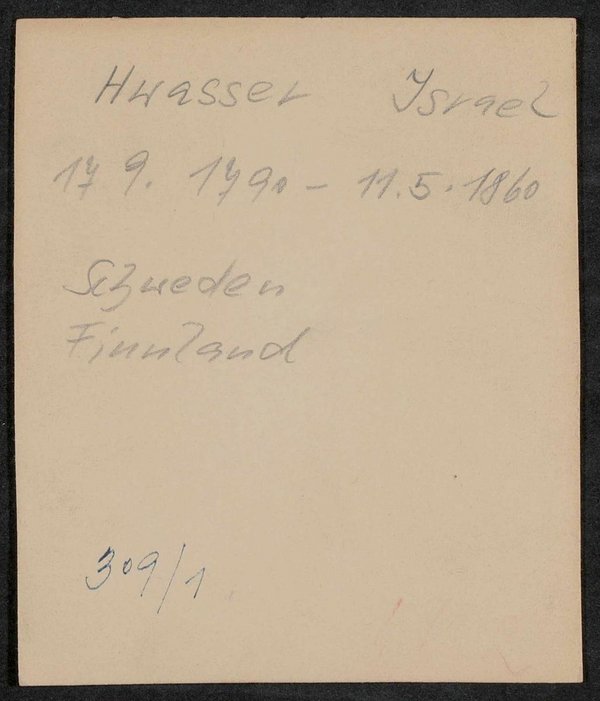 Hwasser Israel
17 9. 1790 - 11.5.1860
Schweden
Finnland
309/1